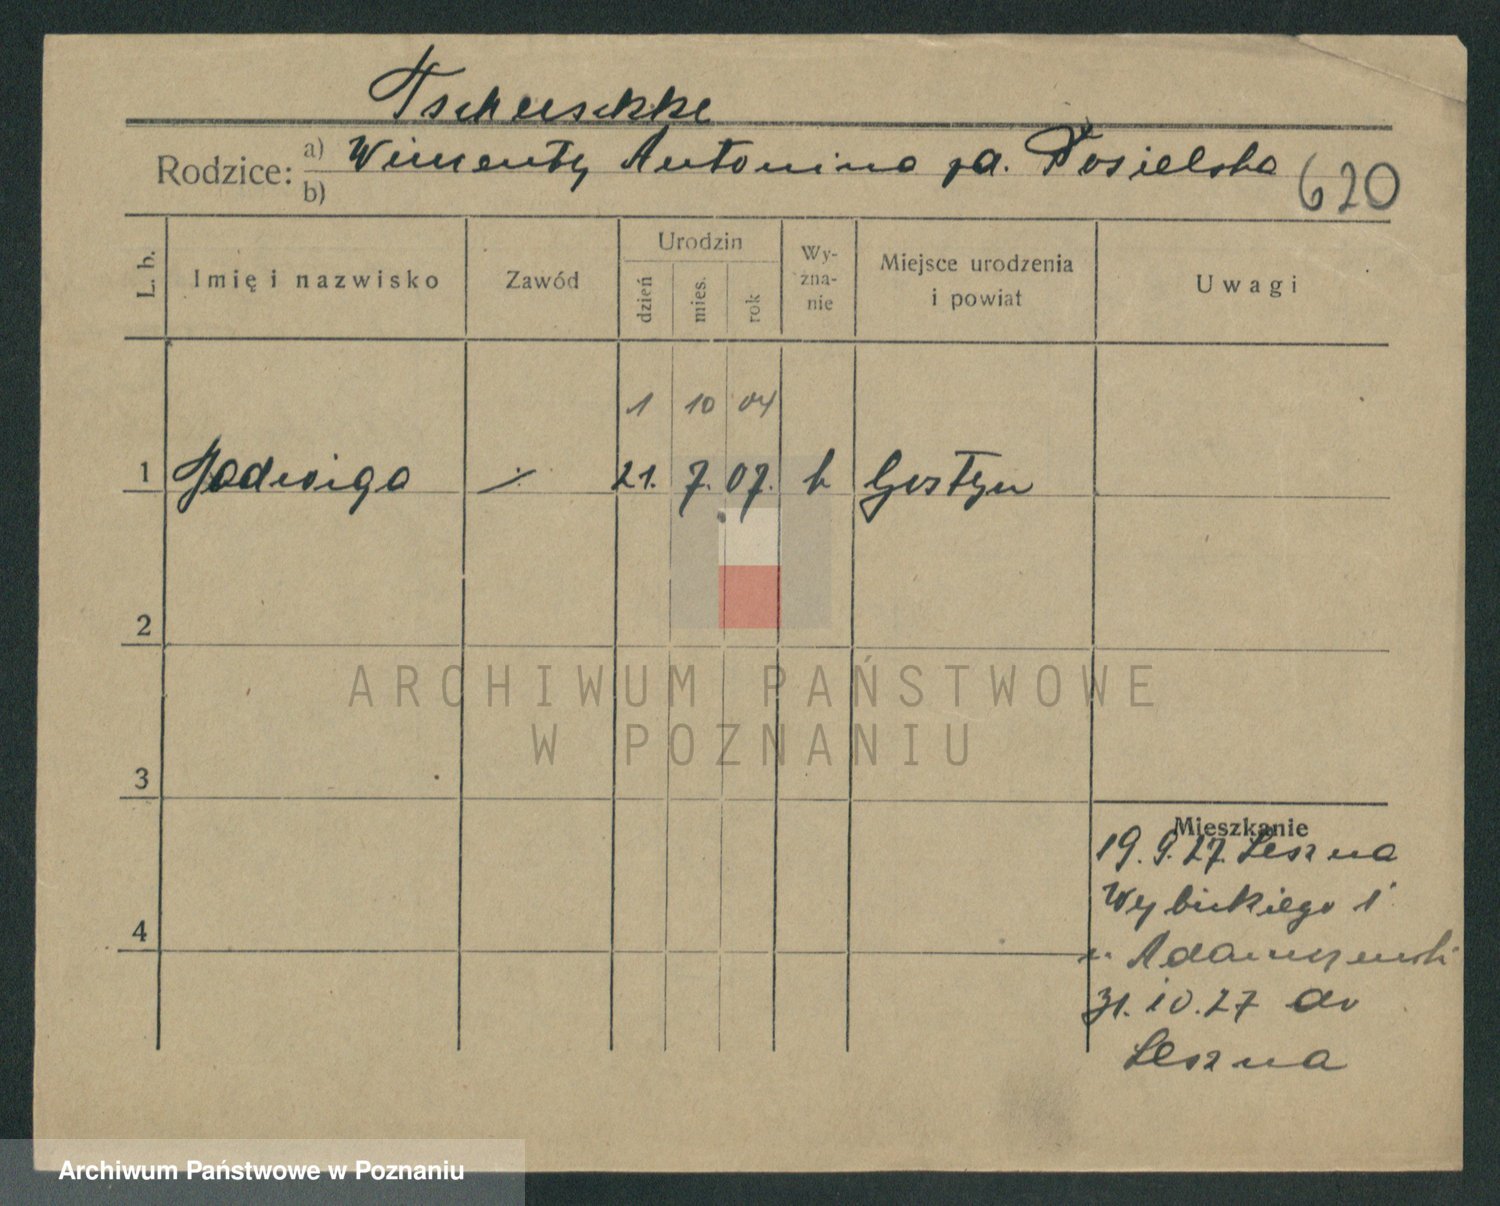 Tschuschke
Rodzice: a) Wincenty Antonina zd. Posielska
b)
620
L. b.
Imię i nazwisko
Zawód
Urodzin
dzień
mies.
rok
Wy-
zna-
nie
Miejsce urodzenia
i powiat
Uwagi
1 10 04
1 Jadwiga 21. 7. 07. k Gostyń
2
3
4
Mieszkanie
19.9.27. Leszna
Wybickiego 1
u. Adamczewski
31.10.27 do
Leszna
ARCHIWUM PAŃSTWOWE
W POZNANIU
Archiwum Państwowe w Poznaniu